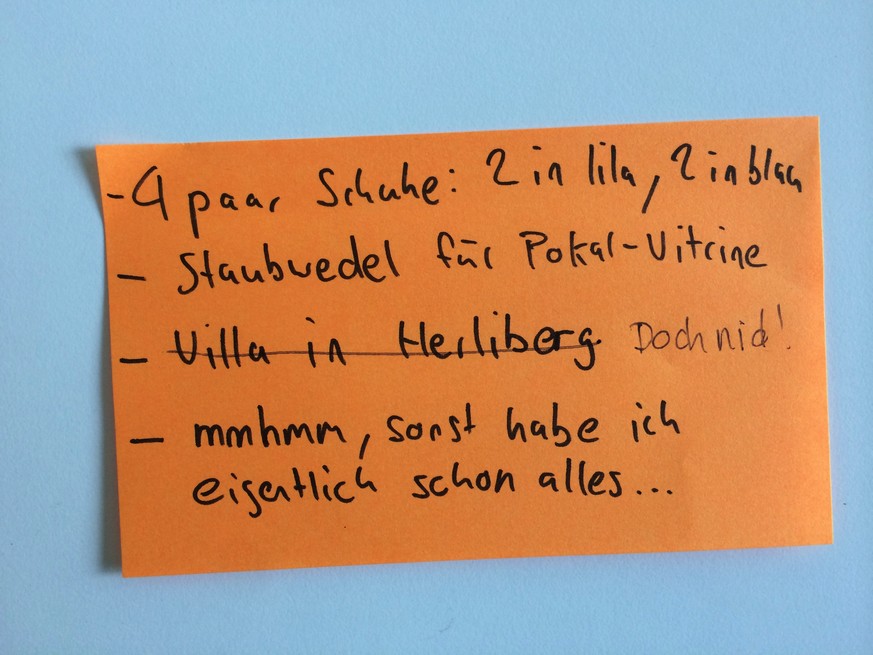 - 4 paar Schuhe: 2 in lila, 2 in blau
- Staubwedel für Pokal-Vitrine
- Villa in Herliberg Doch nid!
- mmhmm, sonst habe ich
eigentlich schon alles...